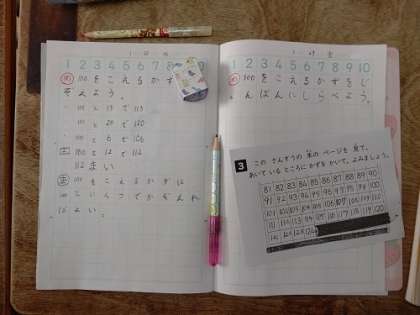 1 2 3 4 5 6 7 8 9 10
㋱ 100をこえるかず
ぞえよう。
100と13で113
100と20で120
100と6で106
100と12で112
112まい
100をこえるかずは
100といくつでかぞえれ
ばよい。
1 2 3 4 5 6 7 8 9 10
100をこえるかずをじ
ゅんばんにしらべよう。
3 この さんすうの 本の ページを 見て、
あいている ところに かずを かいて、よみましょう。
81 82 83 84 85 86 87 88 89 90
91 92 93 94 95 96 97 98 99 100
101 102 103 104 105 106 107 108 109 110
111 112 113 114 115 116 117 118 119 120
121 122 123 124